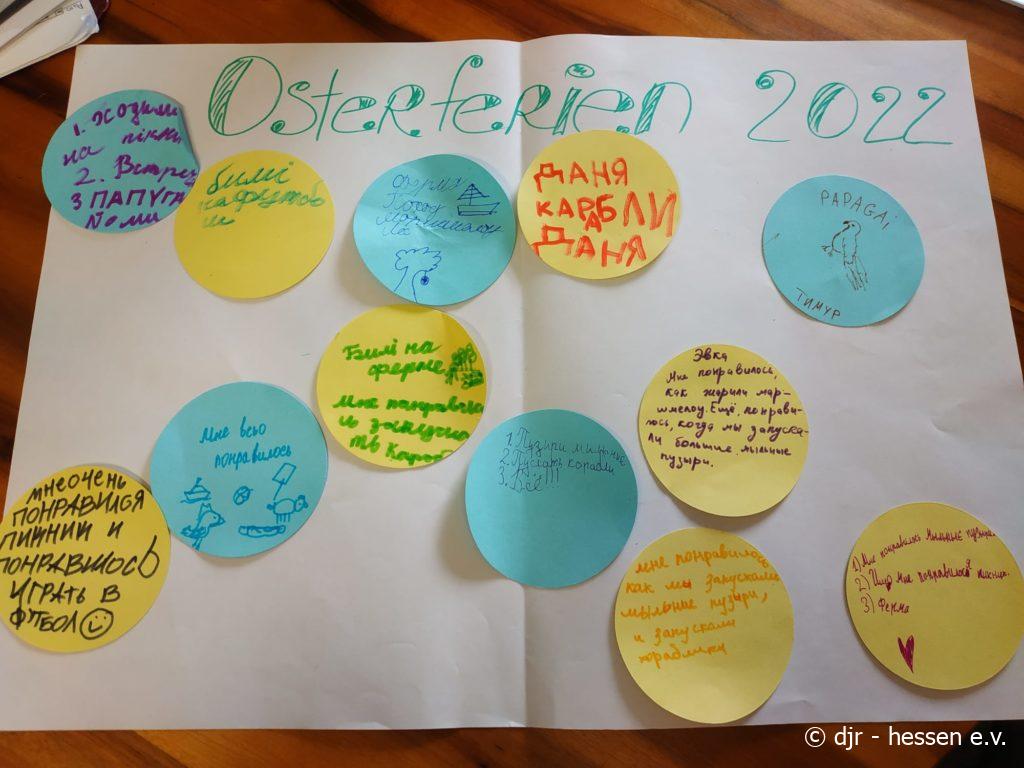 Osterferien 2022
1. Ходили
на пікн
2. Встреч
3 ПАПУГА
були
на футбо
ДАНЯ
КАРАБЛИ
ДАНЯ
PAPAGAi
ТИМУР
Билі на
ферме.
Мне понрави
Эвка
Мне понравилось,
как жарили мар-
шмелоу. Ещё, понрави-
лось, когда мы запуска-
ли большие мыльные
пузыри.
Мне всьо
понравилось
1. Пузыри мильные
2. Пускать корабли
3. Всё!!!
МНЕ ОЧЕНЬ
ПОНРАВИЛСЯ
ПИКНИК И
ПОНРАВИЛОСЬ
ИГРАТЬ В
ФТБОЛ
мне понравилось
как мы запускали
мыльние пузыри,
и запускали
кораблики
1) Мне понравились мыльные пузыри.
2) Ищо мне понравилося пикник.
3) Ферма
© djr - hessen e.v.